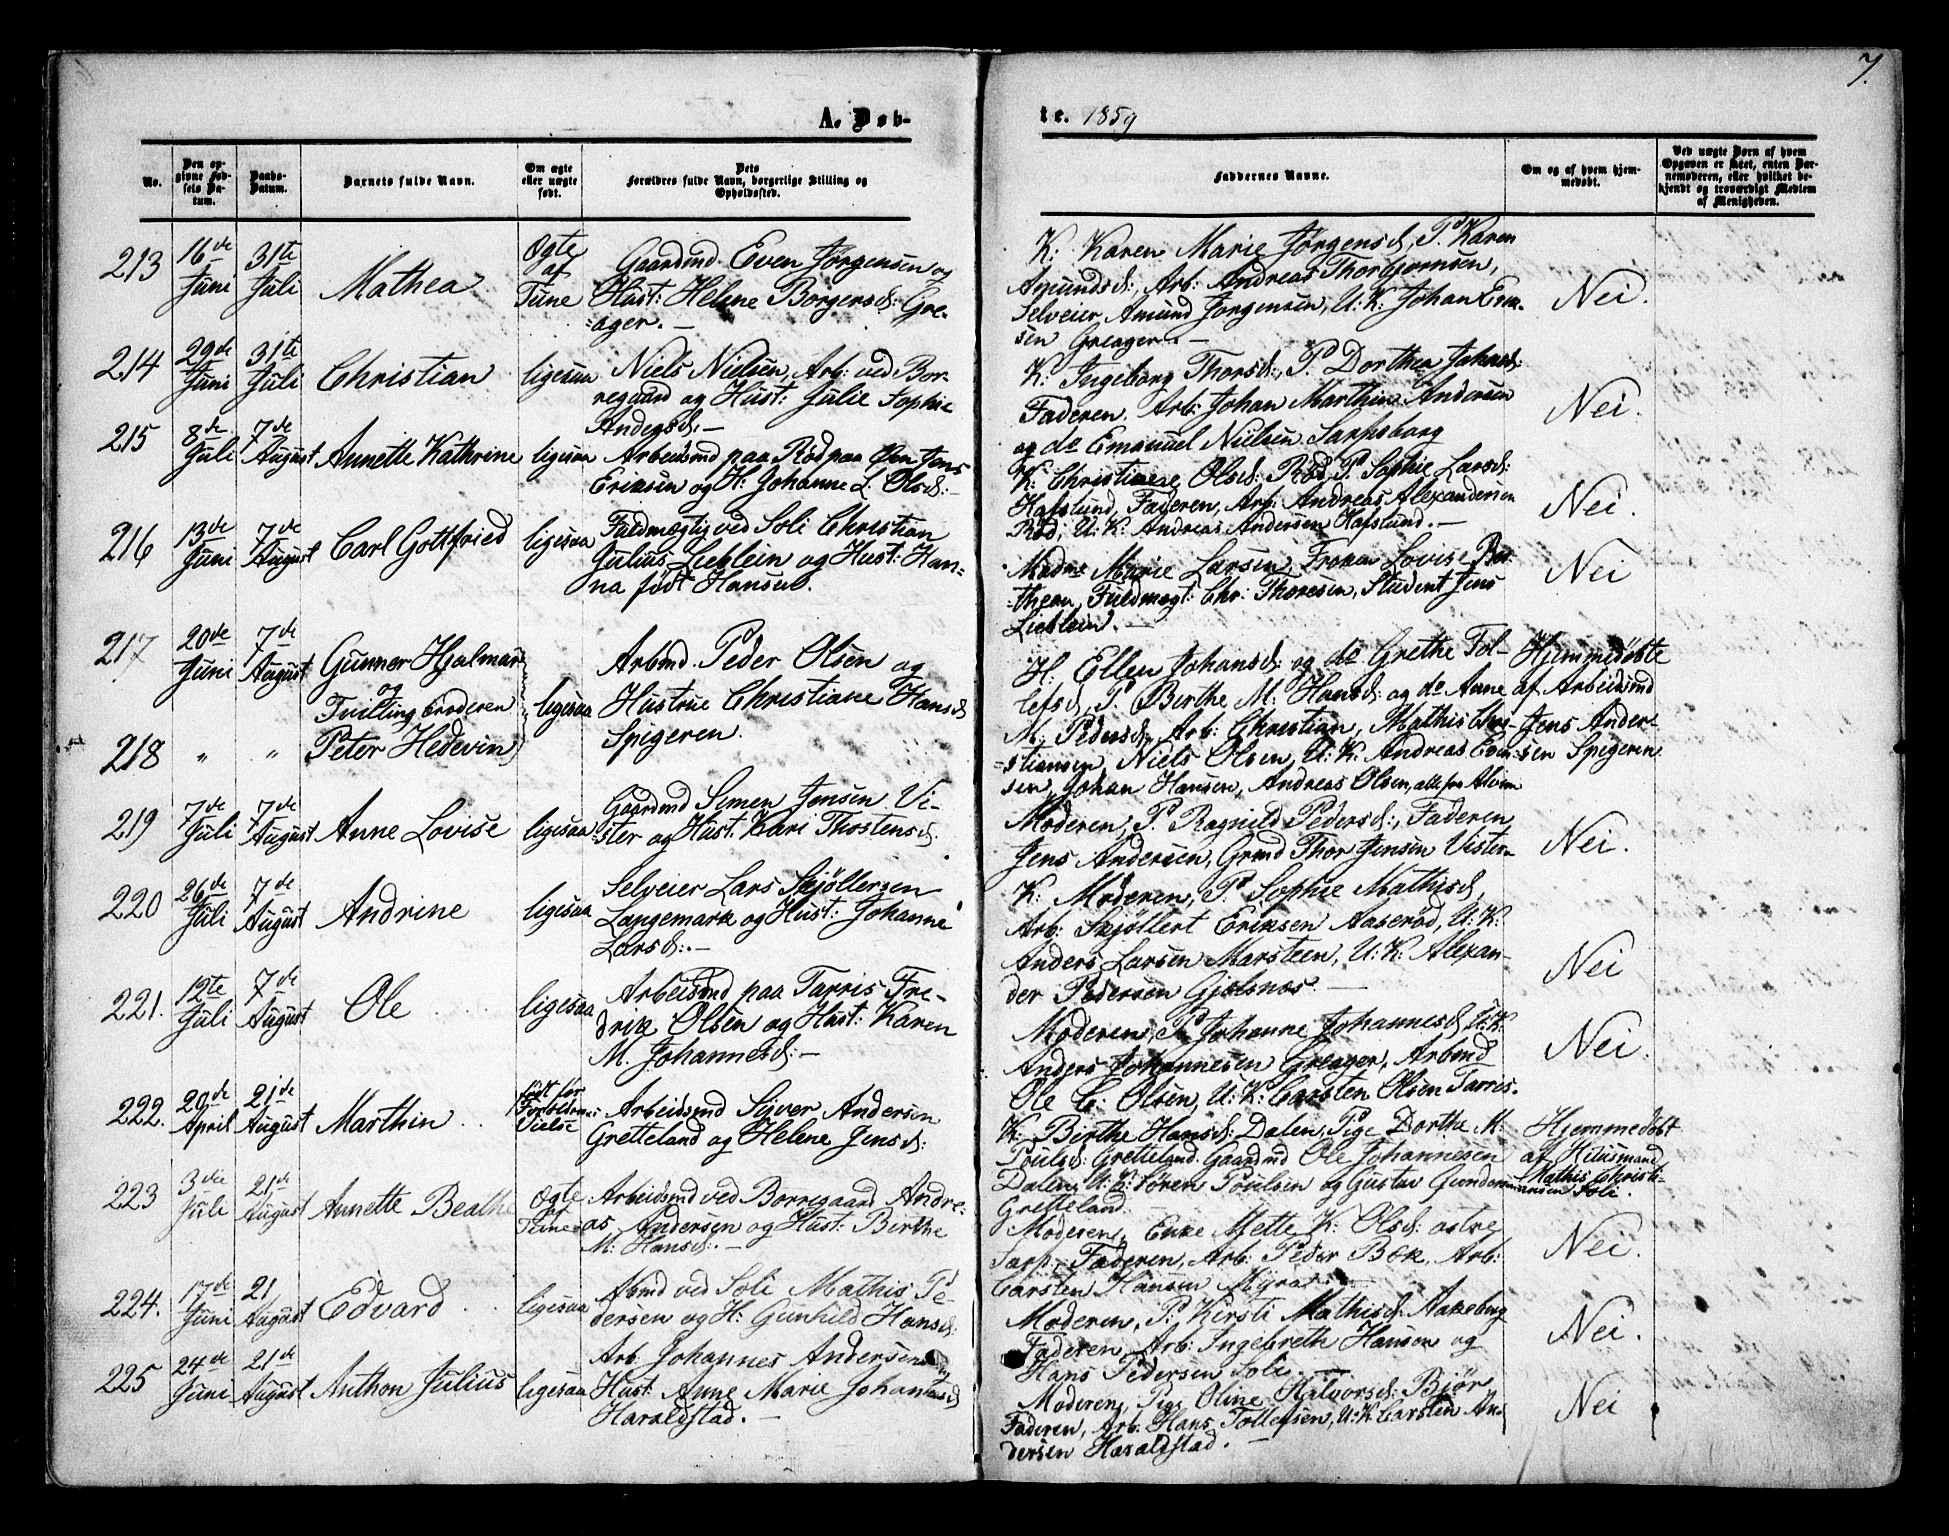 7.
A. Døb-
te. 1859
No.
Den opgivne Fødsels Datum.
Daabs-Datum.
Barnets fulde Navn.
Om ægte eller uægte født.
Dets Forældres fulde Navn, borgerlige Stilling og Opholdssted.
Faddernes Navne.
Om og af hvem hjemmedøbt.
Ved uægte Børn af hvem Opgaven er skeet, enten Barnemoderen, eller hvilket bekjendt og troværdigt Medlem af Menigheden.
213 16de Juni 31te Juli Mathea Ægte af Tune
Gaardmd Even Jørgensen og
Hust: Helene Borgersd: Gre-
=ager. —
K: Karen Marie Jørgensd, P. Karen
Amundsd:, Arb: Andreas Thorbjørnsen,
Selveier Amund Jørgensen, U: K: Johan Even-
sen Greager. —
Nei.
214 29de Juni 31te Juli Christian ligesaa
Niels Nielsen, Arb: ved Bor-
regaard og Hust: Julie Sophie
Andersd: —
K: Ingeborg Thorsd:, P. Dorthea Johnsd:
Faderen. Arb: Johan Marthin Andersen
og do Emanuel Nielsen Sarpsborg
Nei.
215 8de Juli 7de August Annette Kathrine ligesaa
Arbeidsmd paa Rød paa Øen Jens
Eriksen og H: Johanne L. Olsd: —
K: Christiane Olsd: Rød, P. Sophie Larsd:
Hafslund, Faderen, Arb: Andreas Alexandersen
Rød, U: K: Andreas Andersen Hafslund. —
Nei.
216 13de Juni 7de August Carl Gottfried ligesaa
Fuldmægtig ved Soli Christian
Julius Lieblein og Hust: Han-
na født Hansen.
Madme Marie Larsen, Frøken Lovise Ber-
thean, Fuldmægt: Chr: Thoresen, Student Jens
Lieblein. —
Nei
217 20de Juni 7de August Gunner Hjalmar
og
Tvillingbroderen
218 " " Peter Hedevin ligesaa
Arbmd. Peder Olsen og
Hustrue Christiane Hansd
Spigeren.
H. Ellen Johansd: og do Grethe Tol-
lefsd, P. Birthe M. Hansd: og do Anne
M. Pedersd, Arb: Christian, Mathis Chri-
=stiansen, Niels Olsen, U: K: Andreas Even-
sen, Johan Hansen, Andreas Olsen, alle fra Alvim
Hjemmedøbte
af Arbeidsmd
Jens Ander-
sen Spigeren
219 7de Juli 7de August Anne Lovise ligesaa
Gaardmd Simen Jensen Vi-
ster og Hust: Kari Thostensd:
Moderen, P. Ragnild Pedersd:, Faderen
Jens Andersen, Grmd Thor Jensen Vister
Nei.
220 26de Juli 7de August Andrine ligesaa
Selveier Lars Skjøllersen
Langemark og Hust: Johanne
Larsd: —
K: Moderen, P. Sophie Mathisd,
Arb: Skjøllert Eriksen Aaserød, U: K:
Anders Larsen Marsteen, U: K: Alexan-
der Pedersen Gjølsnæs —
Nei
221. 12te Juli 7de August Ole ligesaa
Arbeidsmd paa Tarris Fre-
drik Olsen og Hust: Karen
M. Johannesd: —
Moderen, P. Johanne Johannesd, U: K:
Anders Johannesen Greager, Arbmd
Ole C. Olsen, U: K: Carsten Olsen Tarris.
Nei.
222. 20de April 21de August Marthin født før Forældrenes Vielse
Arbeidsmd Sijver Andersen
Gretteland og Helene Jensd:
K: Birthe Hansd: Dalen, Pige Dorthe M:
Poulsd: Gretteland. Gaardmd Ole Johannesen
Dalen, U: K: Søren Poulsen og Gustav Gunder-
Gretteland.
Hjemmedøbt
af Husmand
Mathis Christi-
ansen Soli.
223 3die Juli 21de August Annette Beathe Ægte Tune
Arbeidsmd ved Borregaard Andre-
as Andersen og Hust: Birthe
M: Hansd: —
Moderen, Enke Mette K: Olsd: østre
Sarp, Faderen, Arb: Peder Bæk, Arb:
Carsten Hansen Myra. —
Nei.
224. 17de Juni 21 August Edvard ligesaa
Abmd ved Soli Mathis Pe-
dersen og H: Gunhild Hansd:
Moderen, P: Kirsti Mathisd: Aakeberg
Faderen, Arb: Ingebreth Hansen og
Hans Pedersen Soli. —
Nei.
225 24de Juni 21de August Anthon Julius ligesaa
Arb: Johannes Andersen og
Hust: Anne Marie Johannesd
Haraldstad. —
Moderen, Pige Oline Halvorsd: Bjør
Faderen, Arb: Hans Tollefsen, U: K: Carsten An-
dersen Haraldstad. —
Nei